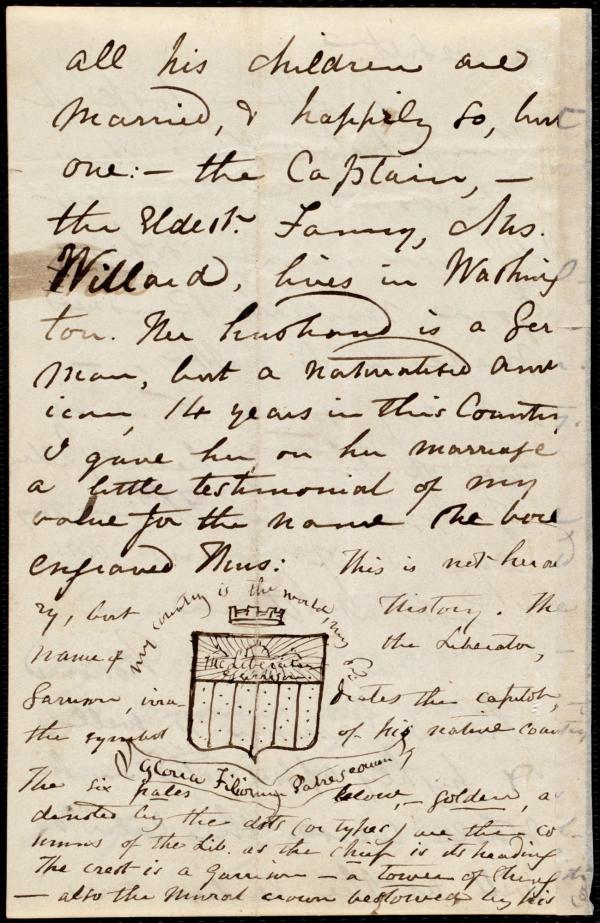 all his children are
Married, & happily so, but
one:— the Captain,—
the Eldest. Fanny, Mrs.
Willard, lives in Washing
ton. Her husband is a Ger-
man, but a naturalised Amer
ican, 14 years in this Country,
I gave her, on her marriage
a little testimonial of my
value for the name she bore
engraved Thus: This is not heral
ry, but History. The
my country is the world, my
name of the Liberator,
The Liberator
Garrison, irra- diates the capitol,
the symbol of his native country
Gloria Filiorum Patres eorum
The six pales below,— golden, as
denoted by the dots (or types) are the co
lumns of the Lib. as the chief is its heading
The crest is a Garrison — a tower of Streng
— also the Mural crown bestowed by his